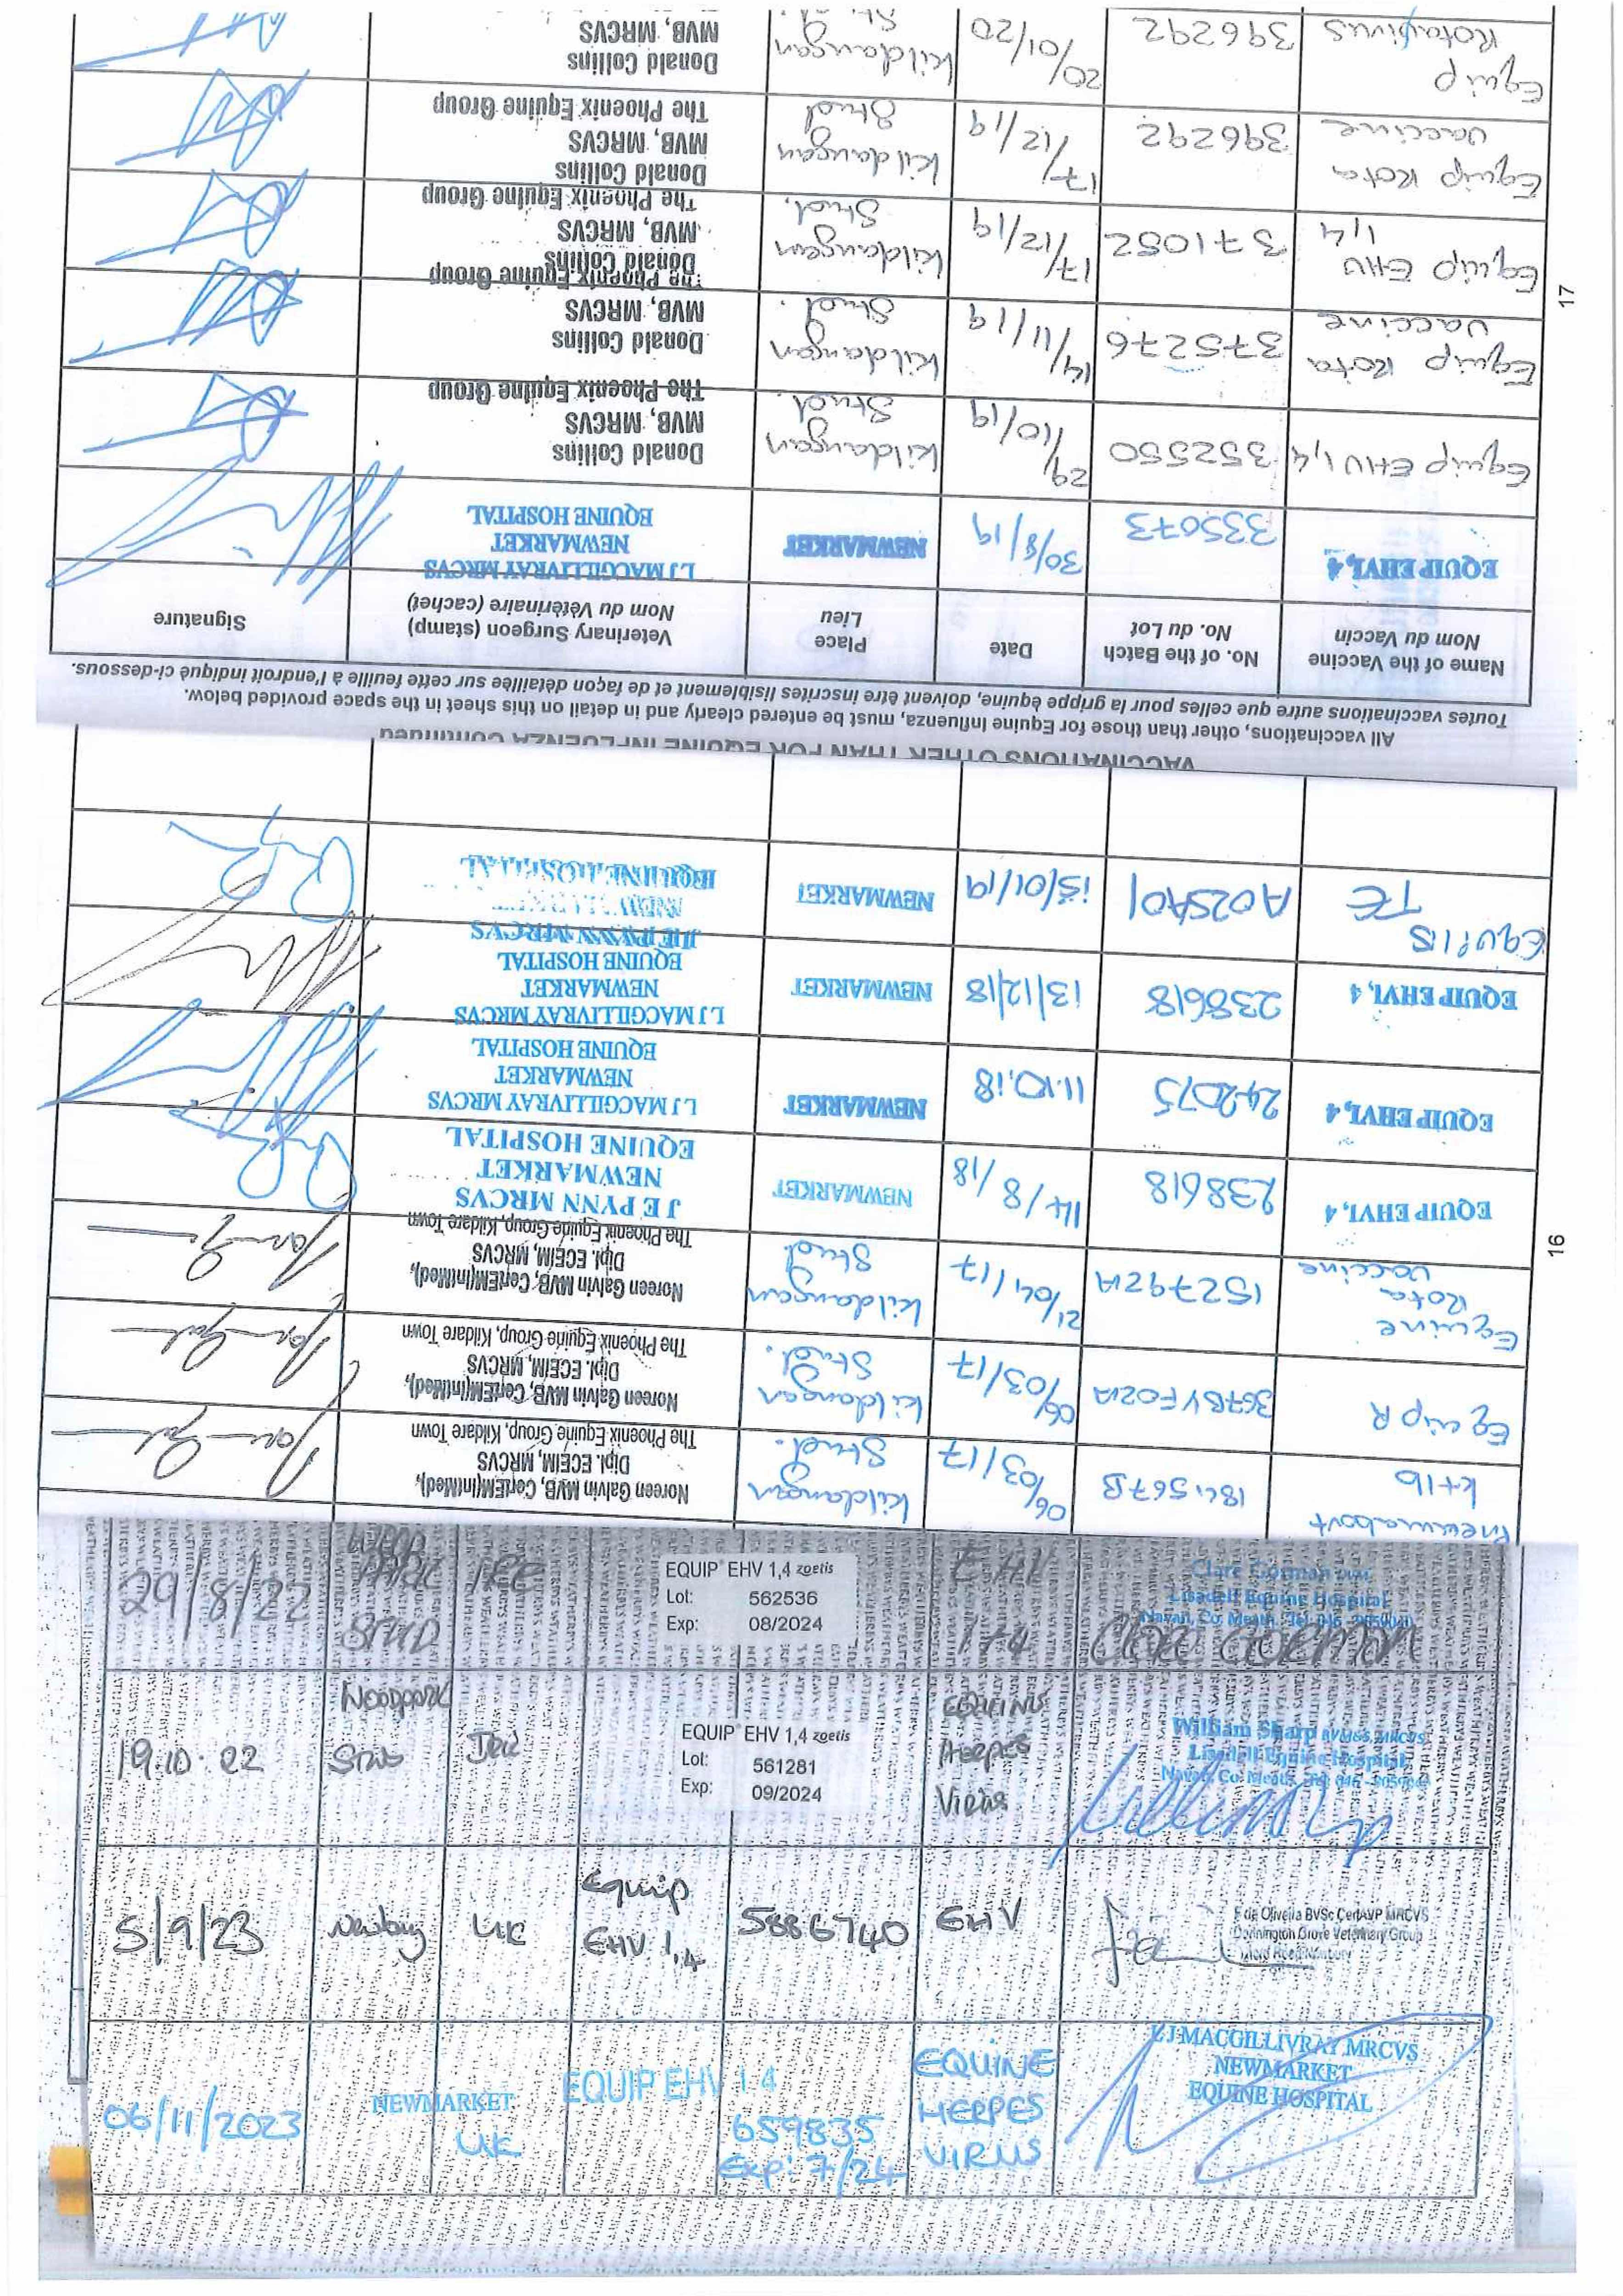 Pneumabort
K+1b
184567B
06/03/17
Kildangan
Stud.
Noreen Galvin MVB, CertEM(IntMed),
Dipl. ECEIM, MRCVS
The Phoenix Equine Group, Kildare Town
Equip R
367BVF02A
06/03/17
Kildangan
Stud.
Noreen Galvin MVB, CertEM(IntMed),
Dipl. ECEIM, MRCVS
The Phoenix Equine Group, Kildare Town
Equine
Rota
Vaccine
152792A
21/04/17
Kildangan
Stud
Noreen Galvin MVB, CertEM(IntMed),
Dipl. ECEIM, MRCVS
The Phoenix Equine Group, Kildare Town
EQUIP EHV1, 4
238618
14/8/18
NEWMARKET
J E PYNN MRCVS
NEWMARKET
EQUINE HOSPITAL
EQUIP EHV1, 4
242075
11.10.18
NEWMARKET
L J MACGILLIVRAY MRCVS
NEWMARKET
EQUINE HOSPITAL
EQUIP EHV1, 4
238618
13/12/18
NEWMARKET
L J MACGILLIVRAY MRCVS
NEWMARKET
EQUINE HOSPITAL
EQUILIS
TE
A025A01
15/01/19
NEWMARKET
J E PYNN MRCVS
NEWMARKET
EQUINE HOSPITAL
16
VACCINATIONS OTHER THAN FOR EQUINE INFLUENZA Continued
All vaccinations, other than those for Equine Influenza, must be entered clearly and in detail on this sheet in the space provided below.
Toutes vaccinations autre que celles pour la grippe équine, doivent être inscrites lisiblement et de façon détaillée sur cette feuille à l'endroit indiqué ci-dessous.
Name of the Vaccine
Nom du Vaccin
No. of the Batch
No. du Lot
Date
Place
Lieu
Veterinary Surgeon (stamp)
Nom du Vétérinaire (cachet)
Signature
EQUIP EHV1, 4
335073
30/8/19
NEWMARKET
L J MACGILLIVRAY MRCVS
NEWMARKET
EQUINE HOSPITAL
Equip EHV 1,4
352550
29/10/19
Kildangan
Stud.
Donald Collins
MVB, MRCVS
The Phoenix Equine Group
Equip Rota
Vaccine
375276
14/11/19
Kildangan
Stud.
Donald Collins
MVB, MRCVS
The Phoenix Equine Group
Equip EHV
1,4
371052
17/12/19
Kildangan
Stud.
Donald Collins
MVB, MRCVS
The Phoenix Equine Group
Equip Rota
Vaccine
396292
17/12/19
Kildangan
Stud
Donald Collins
MVB, MRCVS
The Phoenix Equine Group
Equip
Rotavirus
396292
20/01/20
Kildangan
Donald Collins
MVB, MRCVS
17
29/8/22
WOOD
PARK
STUD
IRE
EQUIP® EHV 1,4 zoetis
Lot: 562536
Exp: 08/2024
EHV
1+4
Clare Gorman
Lisadell Equine Hospital
Navan, Co. Meath.
CLARE GORMAN
19.10.22
Woodpark
Stud
IRE
EQUIP® EHV 1,4 zoetis
Lot: 561281
Exp: 09/2024
EQUINE
HERPES
VIRUS
William Sharp BVM&S, MRCVS
Lisadell Equine Hospital
Navan, Co. Meath.
5/9/23
Newbury
UK
Equip
EHV 1,4
5886740
EHV
F de Oliveira BVSc CertAVP MRCVS
Donnington Grove Veterinary Group
06/11/2023
NEWMARKET
UK
EQUIP EHV 1 4
659835
Exp: 7/24
EQUINE
HERPES
VIRUS
L J MACGILLIVRAY MRCVS
NEWMARKET
EQUINE HOSPITAL